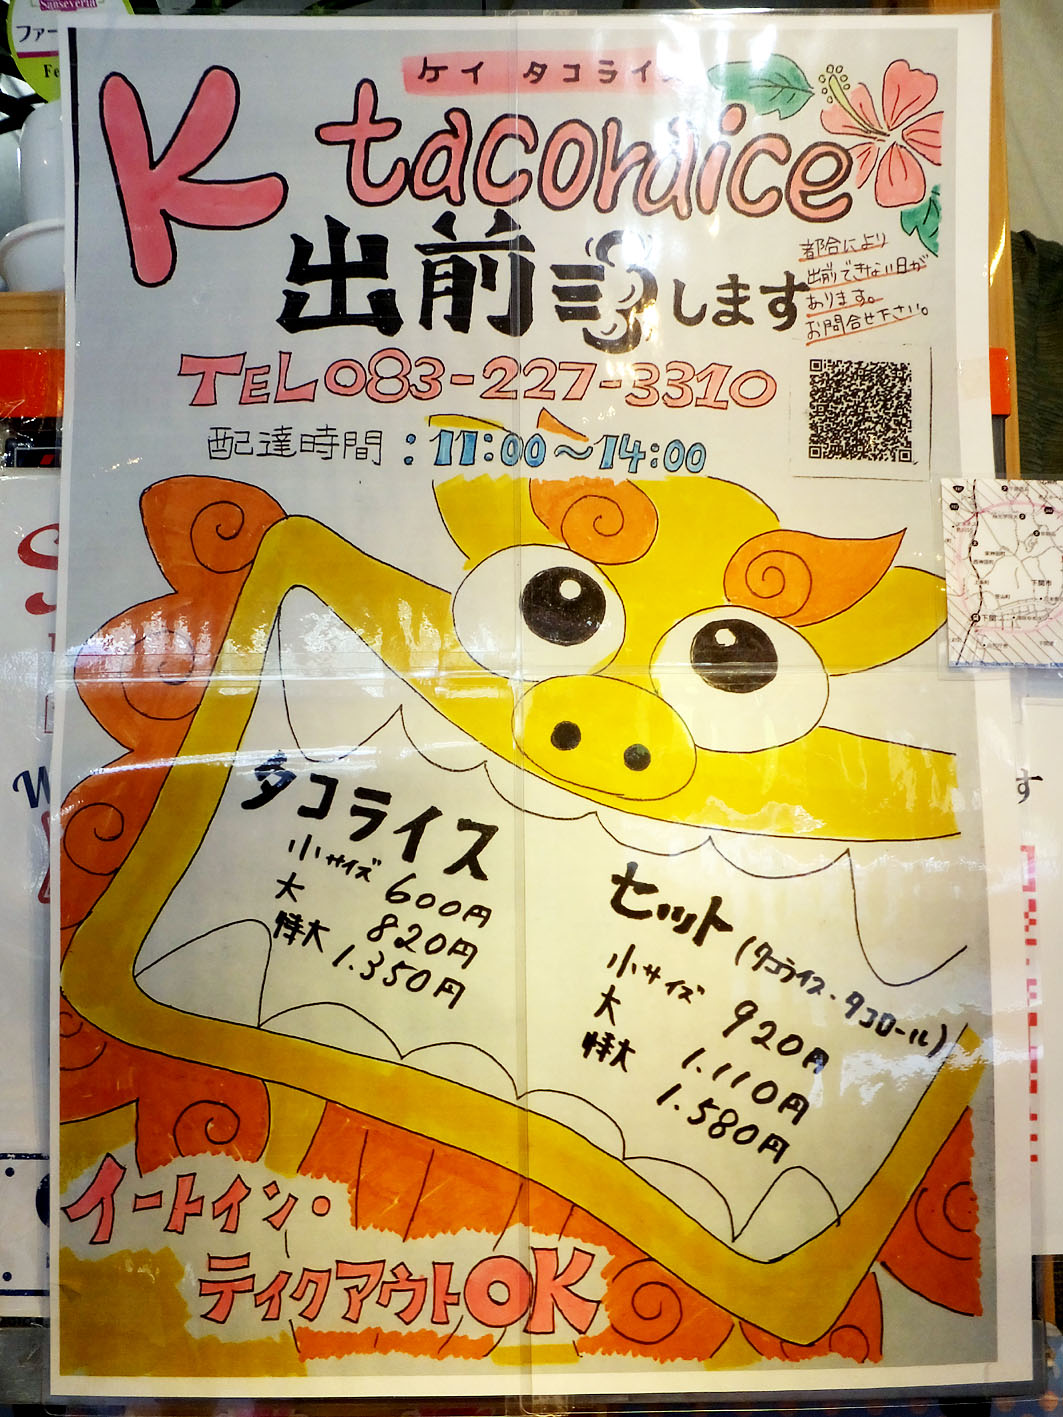 Sanseveria
ファー
Fe
ケイ タコライス
K tacoraice
出前
します
都合により
出前できない日が
あります。
お問合せ下さい。
TEL 083-227-3310
配達時間:11:00~14:00
タコライス
小サイズ 600円
大 820円
特大 1.350円
セット(タコライス・タコロール)
小サイズ 920円
大 1.110円
特大 1.580円
イートイン・
テイクアウトOK
下関市
下関
す